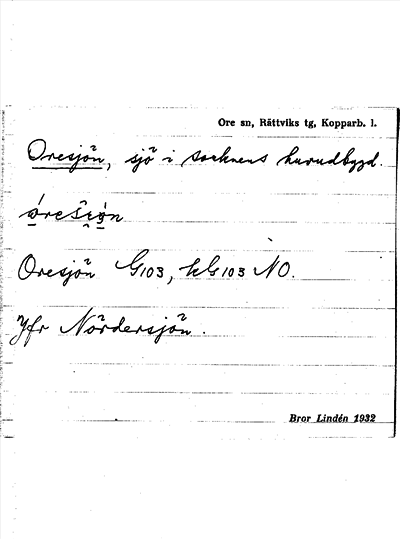 Ore sn, Rättviks tg, Kopparb. l.
Oresjön, sjö i socknens huvudbygd.
Oresjön G103, kG103 NO.
Jfr Nordersjön.
Bror Lindén 1932